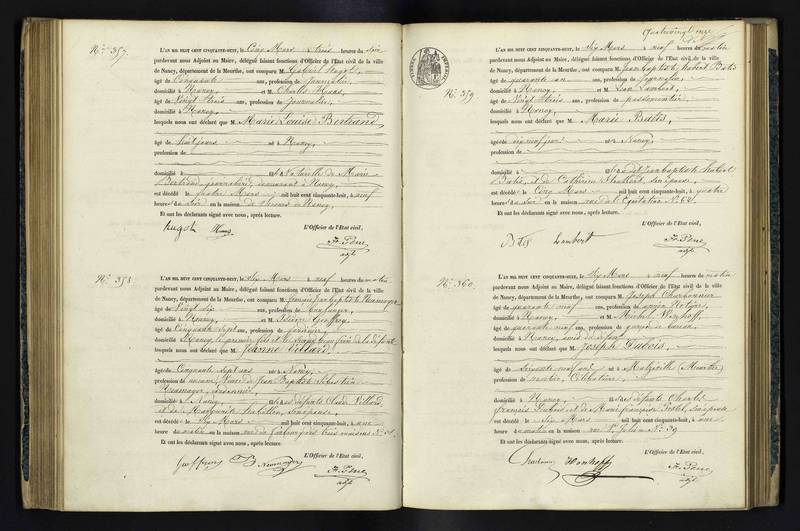 N.° 357.
L'AN MIL HUIT CENT CINQUANTE-HUIT, le Cinq Mars à trois heures du soir
pardevant nous Adjoint au Maire, délégué faisant fonctions d'Officier de l'Etat civil de la ville
de Nancy, département de la Meurthe, ont comparu M. Gabriel
âgé de Cinquante ans, profession de Journalier,
domicilié à Nancy, et M. Charles Haas,
âgé de Vingt trois ans, profession de Journalier,
domicilié à Nancy,
lesquels nous ont déclaré que M. Marie Louise Bertrand,
âgé de huit jours né à Nancy,
profession de
domicilié à fille de Marie
Bertrand, journalière, demeurant à Nancy,
est décédé le quatre Mars mil huit cent cinquante-huit, à neuf
heures du soir en la maison de secours de Nancy,
Et ont les déclarants signé avec nous, après lecture.
L'Officier de l'Etat civil,
Haas
adjt
N.° 358
L'AN MIL HUIT CENT CINQUANTE-HUIT, le Six Mars à neuf heures du matin
pardevant nous Adjoint au Maire, délégué faisant fonctions d'Officier de l'Etat civil de la ville
de Nancy, département de la Meurthe, ont comparu M. françois Jean baptiste
âgé de Vingt six ans, profession de
domicilié à Nancy, et M. Geoffroy,
âgé de Cinquante sept ans, profession de Jardinier,
domicilié à Nancy, le premier fils et le second beau frère de la défunte
lesquels nous ont déclaré que M. Jeanne Villard,
âgé de Cinquante sept ans né à Nancy,
profession de Veuve de Jean Baptiste Sébastien
domicilié à Nancy, des défunts Claude Villard,
et de Marguerite son épouse,
est décédé le Six Mars mil huit cent cinquante-huit, à une
heure du matin en la maison rue du faubourg des trois maisons N.°
Et ont les déclarants signé avec nous, après lecture.
L'Officier de l'Etat civil,
Geoffroy
adjt
Quatrevingt onze
N.° 359.
L'AN MIL HUIT CENT CINQUANTE-HUIT, le Six Mars à neuf heures du matin
pardevant nous Adjoint au Maire, délégué faisant fonctions d'Officier de l'Etat civil de la ville
de Nancy, département de la Meurthe, ont comparu M. Jean baptiste hubert Batis
âgé de quarante un ans, profession de Journalier,
domicilié à Nancy, et M. Léon Lambert,
âgé de Vingt trois ans, profession de passementier,
domicilié à Nancy,
lesquels nous ont déclaré que M. Marie Batis,
âgé de dix neuf jours né à Nancy,
profession de
domicilié à fille de dit Jean baptiste hubert
Batis, et de Catherine son épouse,
est décédé le Cinq Mars mil huit cent cinquante-huit, à quatre
heures du soir en la maison rue de l'Equitation N.°
Et ont les déclarants signé avec nous, après lecture.
L'Officier de l'Etat civil,
Lambert
adjt
N.° 360.
L'AN MIL HUIT CENT CINQUANTE-HUIT, le Six Mars à neuf heures du matin
pardevant nous Adjoint au Maire, délégué faisant fonctions d'Officier de l'Etat civil de la ville
de Nancy, département de la Meurthe, ont comparu M. Joseph Charbonnier
âgé de quarante neuf ans, profession de
domicilié à Nancy, et M. Michel
âgé de quarante neuf ans, profession de garçon de bureau
domicilié à Nancy, amis du défunt
lesquels nous ont déclaré que M. Joseph Dubois,
âgé de Soixante neuf ans né à Malzéville (Meurthe)
profession de rentier, Célibataire,
domicilié à Nancy, des défunts Charles
françois Dubois et de Marie françoise son épouse
est décédé le Six Mars mil huit cent cinquante-huit, à une
heure du matin en la maison rue St Julien N.° 39
Et ont les déclarants signé avec nous, après lecture.
L'Officier de l'Etat civil,
adjt